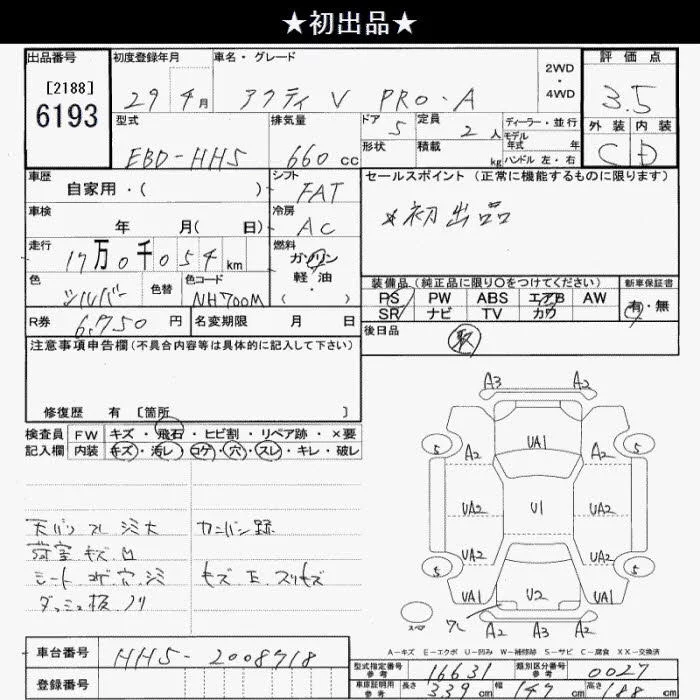 ★初出品★
出品番号
[2188]
6193
初度登録年月
29年 4月
車名・グレード
アクティ V PRO・A
2WD
・
4WD
評価点
3.5
外装 内装
C D
型式
EBD-HH5
排気量
660 cc
ドア 5
形状
定員 2 人
積載 kg
ディーラー・並行
モデル年式 年
ハンドル 左・右
車歴
自家用・( )
シフト
FAT
車検
年 月( 日)
冷房
AC
走行
17万0千054 km
燃料
ガソリン
軽・油
色
シルバー
色替
色コード
NH700M
R券 6,750 円
名変期限 月 日
セールスポイント (正常に機能するものに限ります)
*初出品
装備品 (純正品に限り○をつけてください)
PS PW ABS エアB AW
SR ナビ TV カワ
新車保証書
有・無
後日品
取
注意事項申告欄(不具合内容等は具体的に記入して下さい)
修復歴 有 [箇所 ]
検査員
記入欄
FW キズ・飛石・ヒビ割・リペア跡・×要
内装 キズ・汚レ・コゲ・穴・スレ・キレ・破レ
天バリ スレ 汚大
カンバン跡
荷室 キズ 凹
シート コゲ 穴 汚
キズ E スリキズ
ダッシュ板ノリ
A3 A2
5 5
UA1
A2 A2
UA2 U1 UA2
UA2 UA2
5 5
UA1 U2 UA1
スペア
A2 A3 A2
A-キズ E-エクボ U-凹み W-補修跡 S-サビ C-腐食 XX-交換済
車台番号
HH5-2008718
登録番号
型式指定番号
参考
16631
類別区分番号
参考
0027
車庫証明用
参考
長さ 339 cm 幅 147 cm 高さ 188 cm